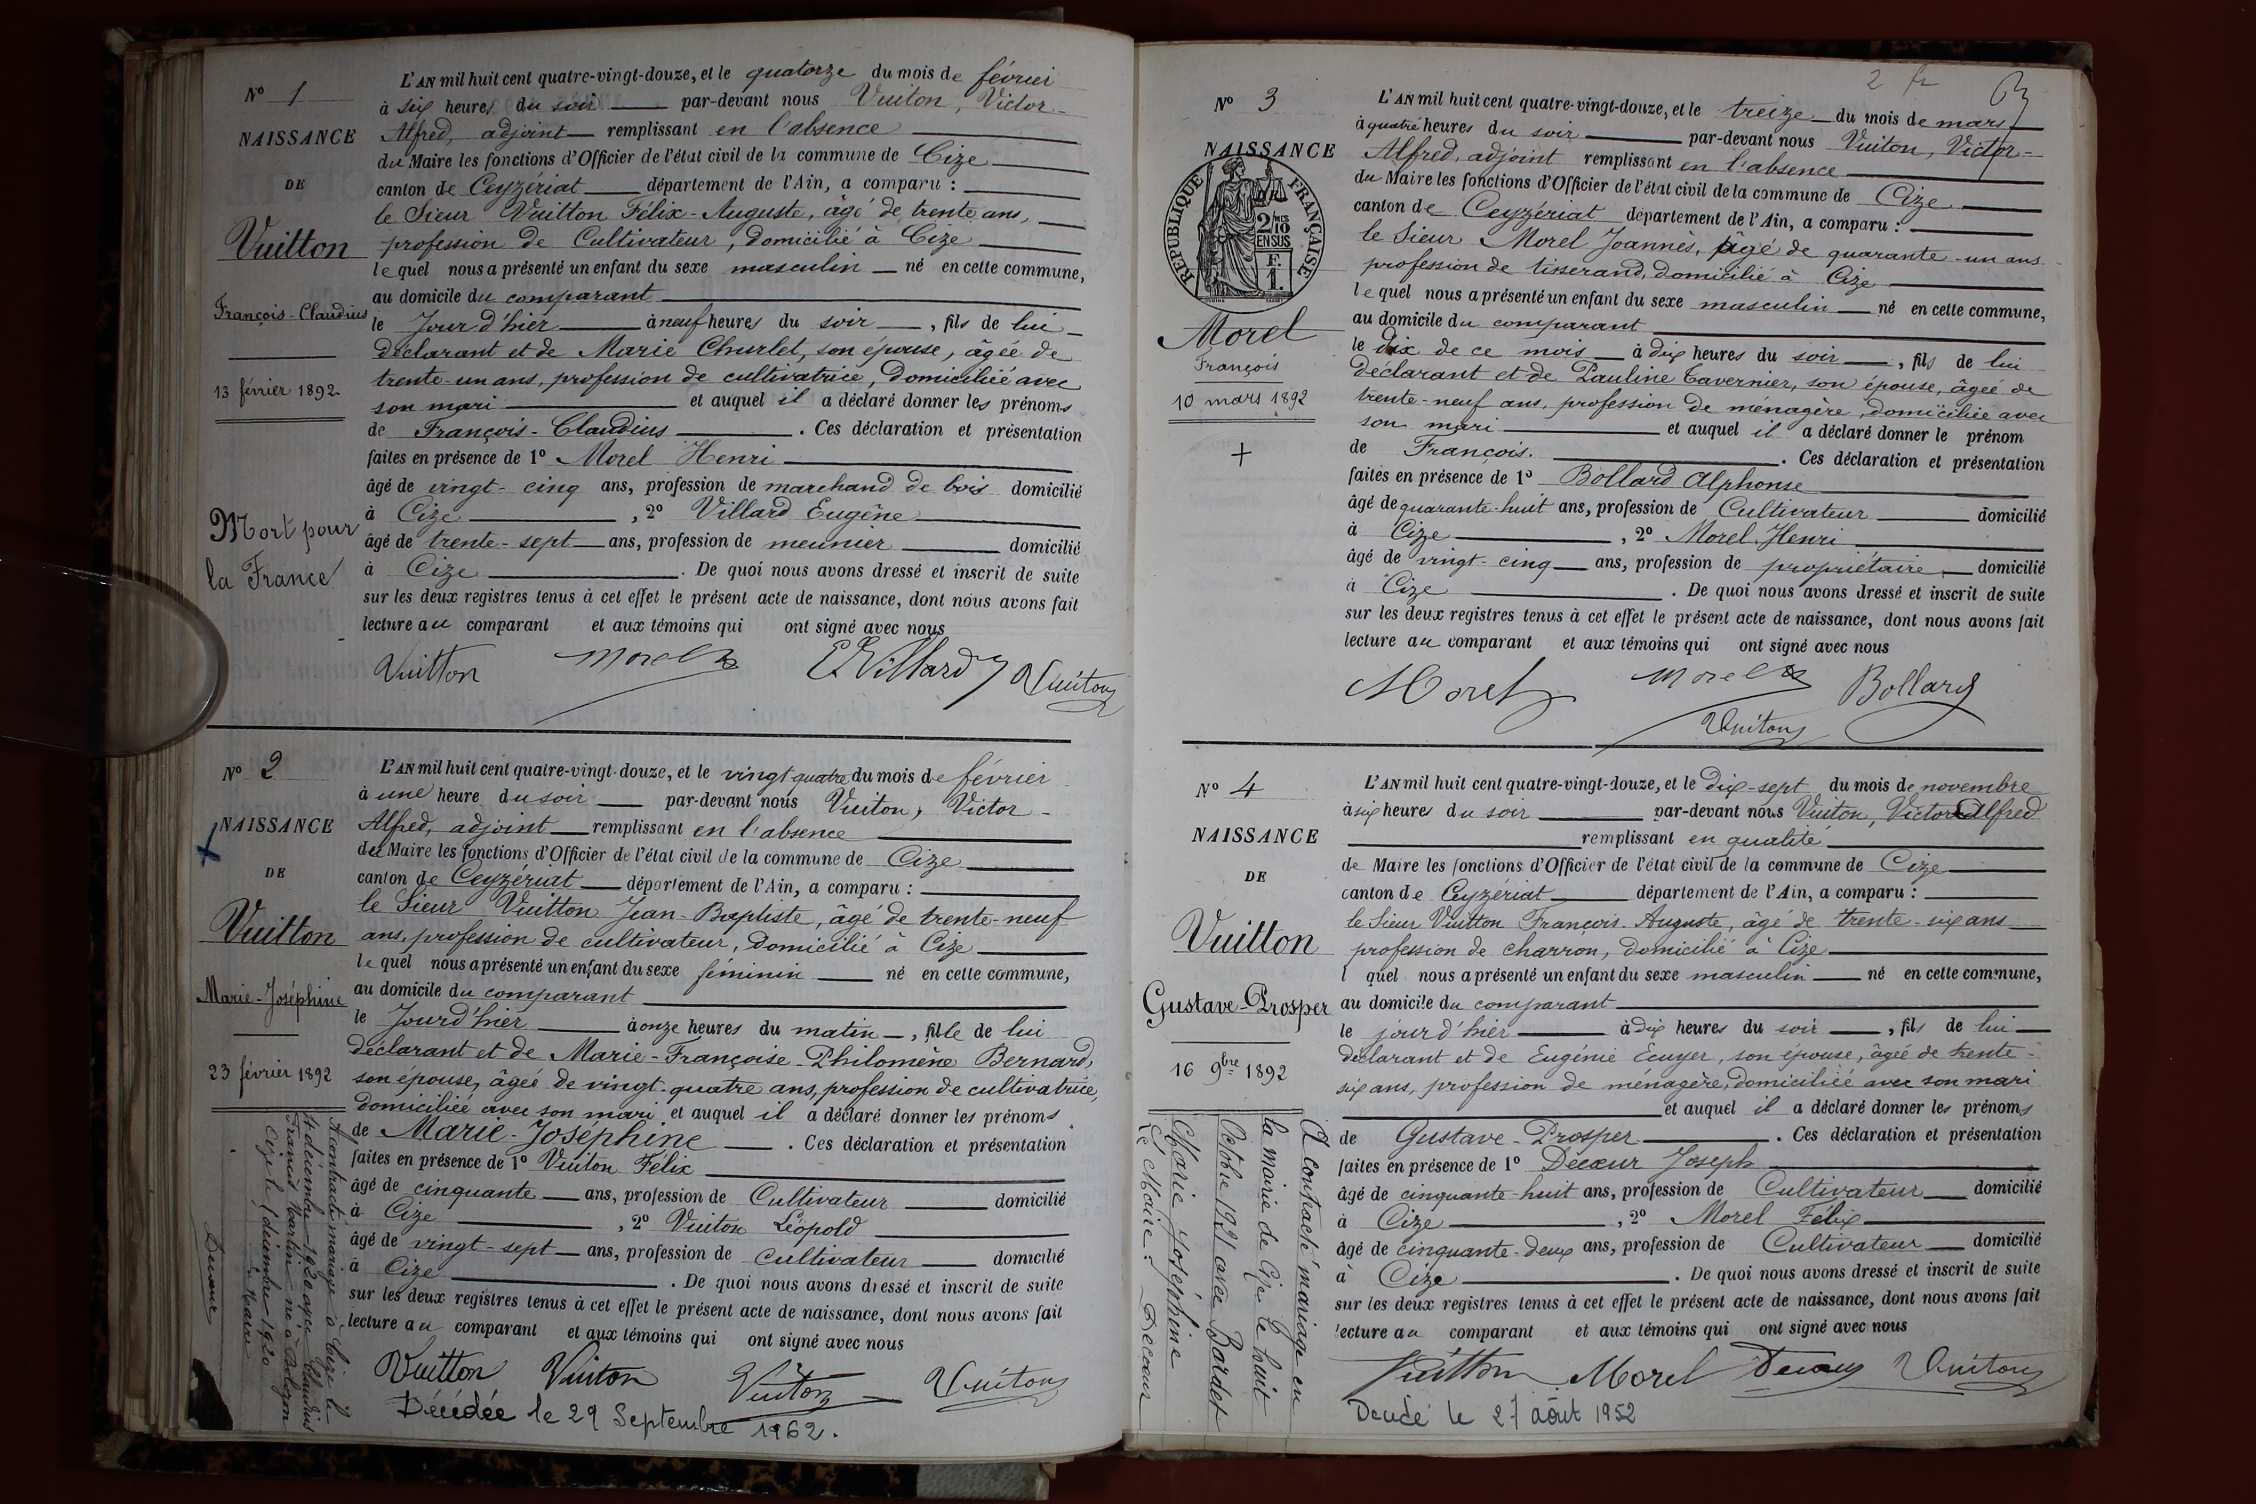 N° 1
NAISSANCE
DE
Vuitton
François-Claudius
13 février 1892
Mort pour
la France
L'AN mil huit cent quatre-vingt-douze, et le quatorze du mois de février
à six heures du soir par-devant nous Vuiton, Victor-
Alfred, adjoint remplissant en l'absence
du Maire les fonctions d'Officier de l'état civil de la commune de Cize
canton de Ceyzériat département de l'Ain, a comparu :
le Sieur Vuitton Félix-Auguste, âgé de trente ans,
profession de Cultivateur, domicilié à Cize
lequel nous a présenté un enfant du sexe masculin né en cette commune,
au domicile du comparant
le Jour d'hier à neuf heures du soir, fils de lui
déclarant et de Marie Churlet, son épouse, âgée de
trente-un ans, profession de cultivatrice, domiciliée avec
son mari et auquel il a déclaré donner les prénoms
de François-Claudius. Ces déclaration et présentation
faites en présence de 1° Morel Henri
âgé de vingt-cinq ans, profession de marchand de bois domicilié
à Cize, 2° Villard Eugène
âgé de trente-sept ans, profession de meunier domicilié
à Cize. De quoi nous avons dressé et inscrit de suite
sur les deux registres tenus à cet effet le présent acte de naissance, dont nous avons fait
lecture au comparant et aux témoins qui ont signé avec nous
Vuitton Morel h E. Villard Vuiton
N° 2
NAISSANCE
DE
Vuitton
Marie-Joséphine
23 février 1892
A contracté mariage à Cize le
4 décembre 1920 avec Claudius
François Martin né à Bolozon
Cize le 4 décembre 1920
Le Maire
Decoeur
L'AN mil huit cent quatre-vingt-douze, et le vingt quatre du mois de février
à une heure du soir par-devant nous Vuiton, Victor-
Alfred, adjoint remplissant en l'absence
du Maire les fonctions d'Officier de l'état civil de la commune de Cize
canton de Ceyzériat département de l'Ain, a comparu :
le Sieur Vuitton Jean-Baptiste, âgé de trente-neuf
ans, profession de cultivateur, domicilié à Cize
lequel nous a présenté un enfant du sexe féminin né en cette commune,
au domicile du comparant
le Jour d'hier à onze heures du matin, fille de lui
déclarant et de Marie-Françoise-Philomène Bernard,
son épouse, âgée de vingt-quatre ans, profession de cultivatrice,
domiciliée avec son mari et auquel il a déclaré donner les prénoms
de Marie-Joséphine. Ces déclaration et présentation
faites en présence de 1° Vuiton Félix
âgé de cinquante ans, profession de Cultivateur domicilié
à Cize, 2° Vuiton Léopold
âgé de vingt-sept ans, profession de cultivateur domicilié
à Cize. De quoi nous avons dressé et inscrit de suite
sur les deux registres tenus à cet effet le présent acte de naissance, dont nous avons fait
lecture au comparant et aux témoins qui ont signé avec nous
Vuitton Vuiton Vuiton Vuiton
Décédée le 29 Septembre 1962.
2 fr
63
N° 3
NAISSANCE
REPUBLIQUE FRANÇAISE
2/10 EN SUS
F. 1.
Morel
François
10 mars 1892
L'AN mil huit cent quatre-vingt-douze, et le treize du mois de mars
à quatre heures du soir par-devant nous Vuiton, Victor-
Alfred, adjoint remplissant en l'absence
du Maire les fonctions d'Officier de l'état civil de la commune de Cize
canton de Ceyzériat département de l'Ain, a comparu :
le Sieur Morel Joannès, âgé de quarante-un ans
profession de tisserand, domicilié à Cize
lequel nous a présenté un enfant du sexe masculin né en cette commune,
au domicile du comparant
le dix de ce mois à dix heures du soir, fils de lui
déclarant et de Pauline Tavernier, son épouse, âgée de
trente-neuf ans, profession de ménagère, domiciliée avec
son mari et auquel il a déclaré donner le prénom
de François. Ces déclaration et présentation
faites en présence de 1° Bollard Alphonse
âgé de quarante-huit ans, profession de Cultivateur domicilié
à Cize, 2° Morel Henri
âgé de vingt-cinq ans, profession de propriétaire domicilié
à Cize. De quoi nous avons dressé et inscrit de suite
sur les deux registres tenus à cet effet le présent acte de naissance, dont nous avons fait
lecture au comparant et aux témoins qui ont signé avec nous
Morel Morel h Bollard
Vuiton
N° 4
NAISSANCE
DE
Vuitton
Gustave-Prosper
16 9bre 1892
A contracté mariage en
la mairie de Cize le huit
Octobre 1921 avec Bardet
Marie Joséphine
Le Maire : Decoeur
L'AN mil huit cent quatre-vingt-douze, et le dix-sept du mois de novembre
à six heures du soir par-devant nous Vuiton, Victor Alfred
remplissant en qualité
de Maire les fonctions d'Officier de l'état civil de la commune de Cize
canton de Ceyzériat département de l'Ain, a comparu :
le Sieur Vuitton François-Auguste, âgé de trente-six ans
profession de charron, domicilié à Cize
l quel nous a présenté un enfant du sexe masculin né en cette commune,
au domicile du comparant
le jour d'hier à dix heures du soir, fils de lui
déclarant et de Eugénie Ecuyer, son épouse, âgée de trente-
six ans, profession de ménagère, domiciliée avec son mari
et auquel il a déclaré donner les prénoms
de Gustave-Prosper. Ces déclaration et présentation
faites en présence de 1° Decoeur Joseph
âgé de cinquante-huit ans, profession de Cultivateur domicilié
à Cize, 2° Morel Félix
âgé de cinquante-deux ans, profession de Cultivateur domicilié
à Cize. De quoi nous avons dressé et inscrit de suite
sur les deux registres tenus à cet effet le présent acte de naissance, dont nous avons fait
lecture au comparant et aux témoins qui ont signé avec nous
Vuitton Morel Decoeur Vuiton
Décédé le 27 août 1952